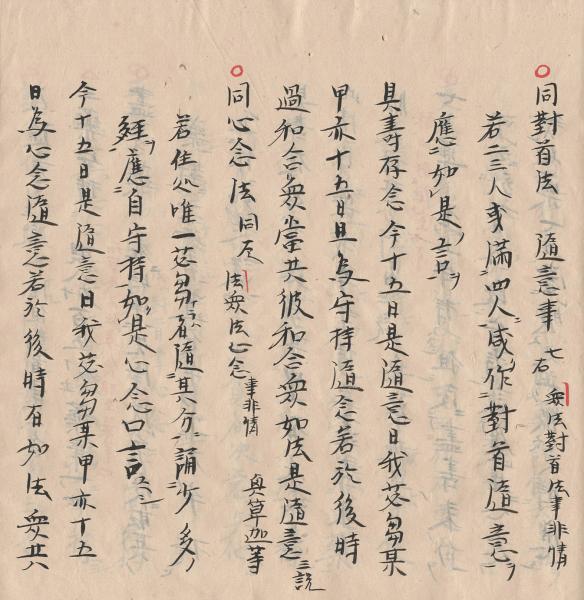 同對首法 隨意事 七右 衆法對首法事非情
若二三人或滿四人咸作對首隨意
應如是言
具壽存念今十五日是隨意日我苾芻某
甲亦十五日且為守持隨念若於後時
過和合衆當共彼和合衆如法是隨意 三說
同心念法 同反 法衆法心念事非情 與草迦等
若住処唯一苾芻 隨其分誦少多
經應自守持如是心念口言云云
今十五日是隨意日我苾芻某甲亦十五
日為心念隨意若於後時有如法衆共